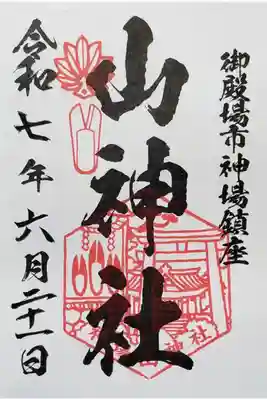 御殿場市神場鎮座
山神社
令和七年六月二十一日